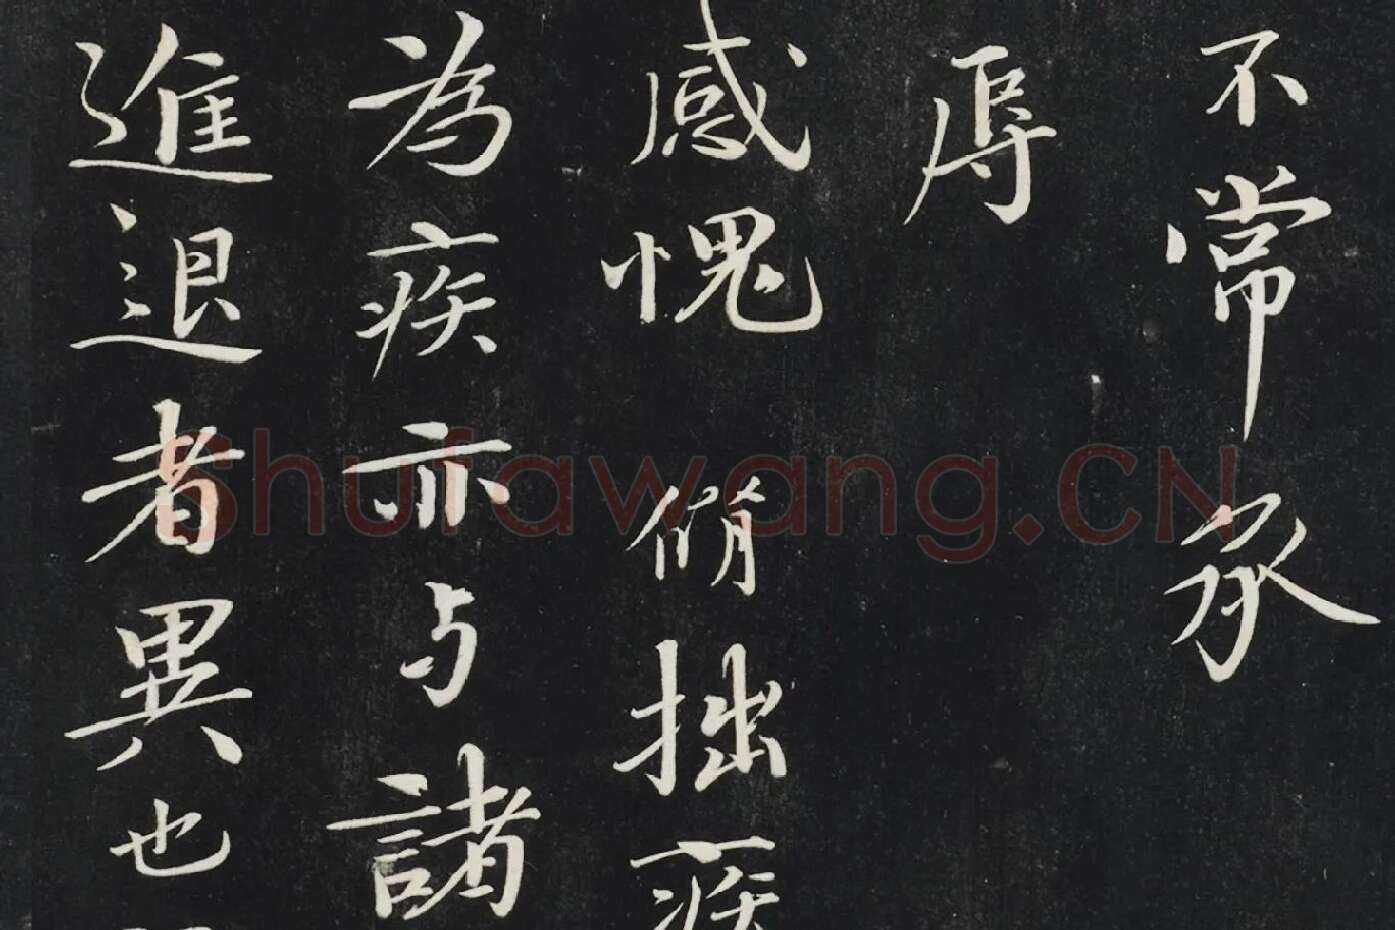 不常承
辱
感愧脩拙疾
為疾亦与諸
進退者異也
Shufawang.CN